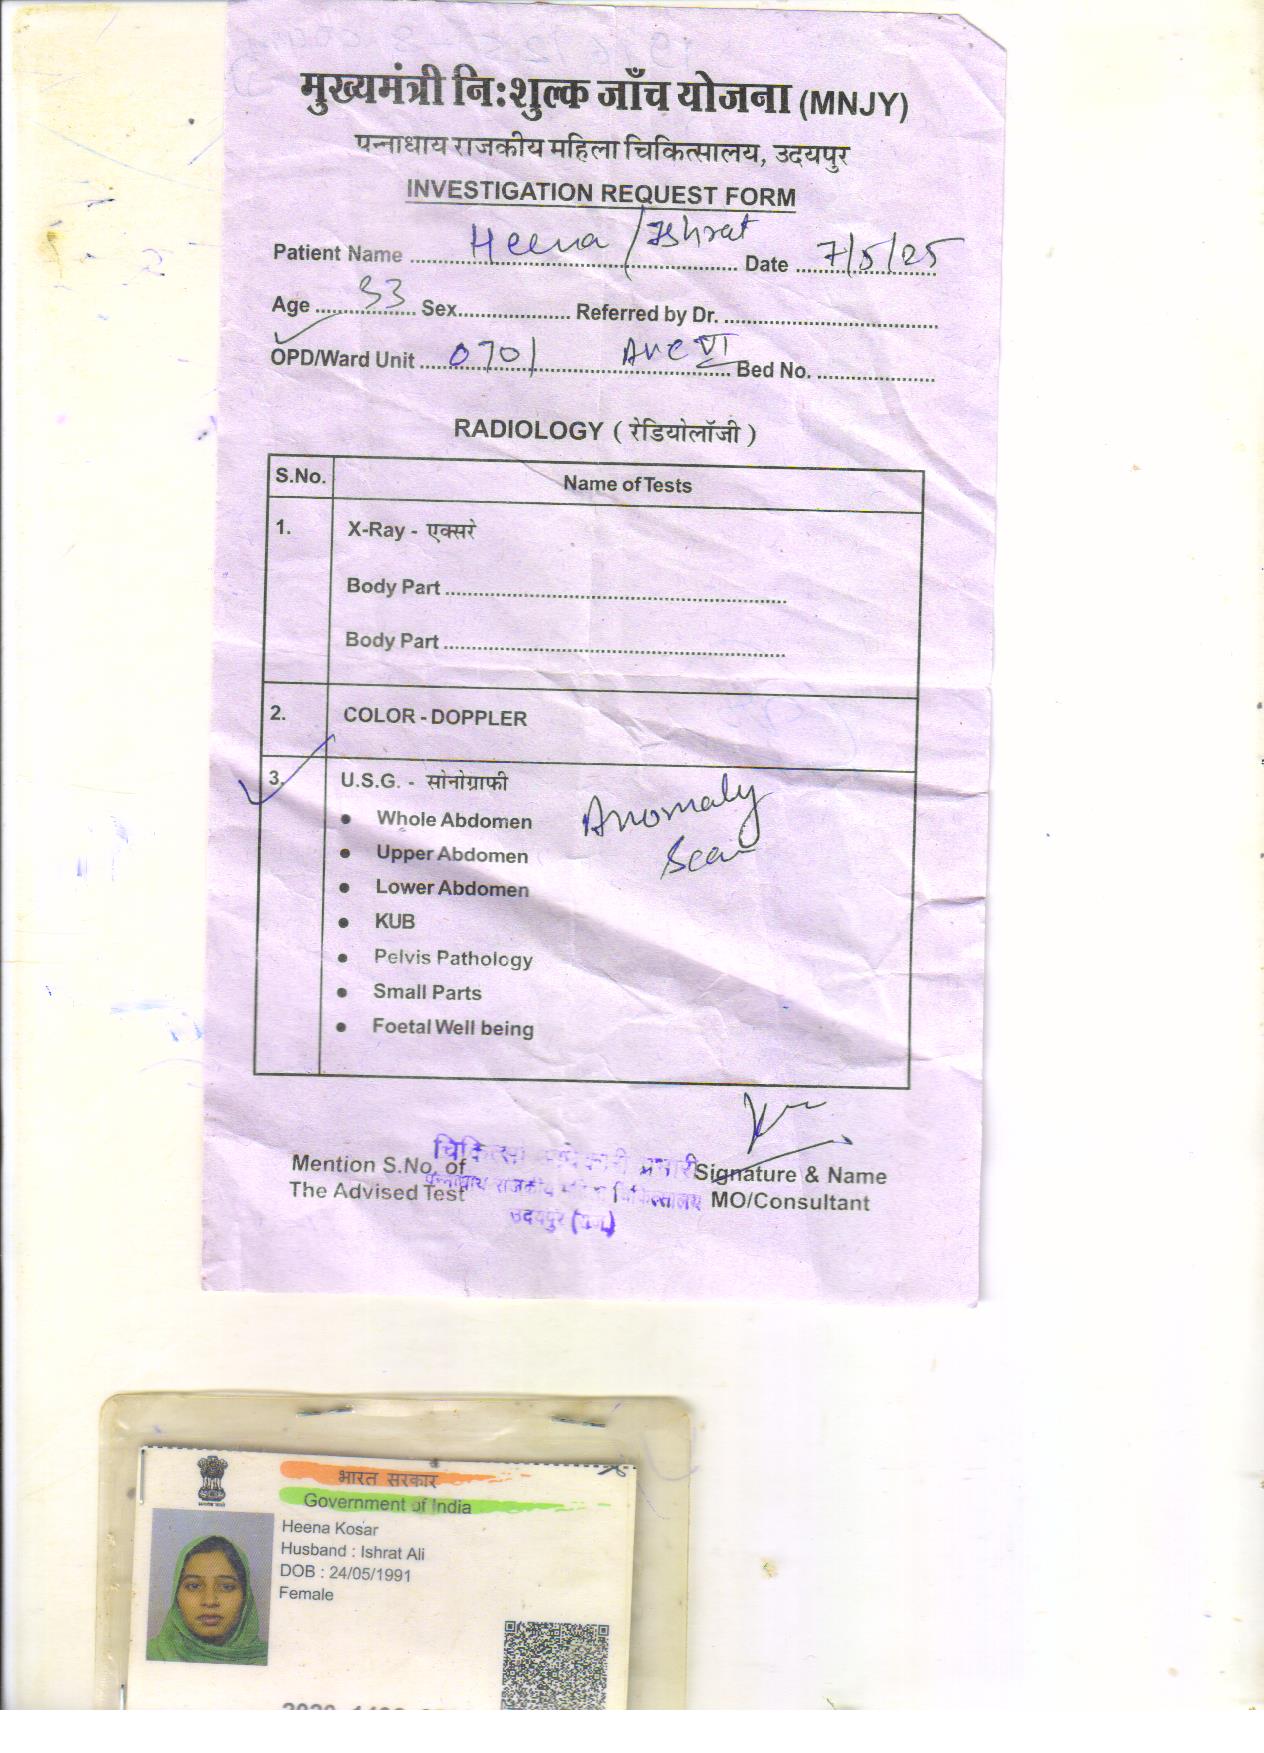 मुख्यमंत्री नि:शुल्क जाँच योजना (MNJY)
पन्नाधाय राजकीय महिला चिकित्सालय, उदयपुर
INVESTIGATION REQUEST FORM
Patient Name Heena / Ishrat Date 7/5/25
Age 33 Sex Referred by Dr.
OPD/Ward Unit 0701 ANC VI Bed No.
RADIOLOGY ( रेडियोलॉजी )
S.No. Name of Tests
1. X-Ray - एक्सरे
Body Part
Body Part
2. COLOR - DOPPLER
3. U.S.G. - सोनोग्राफी
• Whole Abdomen Anomaly
• Upper Abdomen Scan
• Lower Abdomen
• KUB
• Pelvis Pathology
• Small Parts
• Foetal Well being
चिकित्सा अधिकारी प्रभारी
Mention S.No. of Signature & Name
पन्नाधाय राजकीय महिला चिकित्सालय
The Advised Test MO/Consultant
उदयपुर (राज.)
भारत सरकार
Government of India
Heena Kosar
Husband : Ishrat Ali
DOB : 24/05/1991
Female